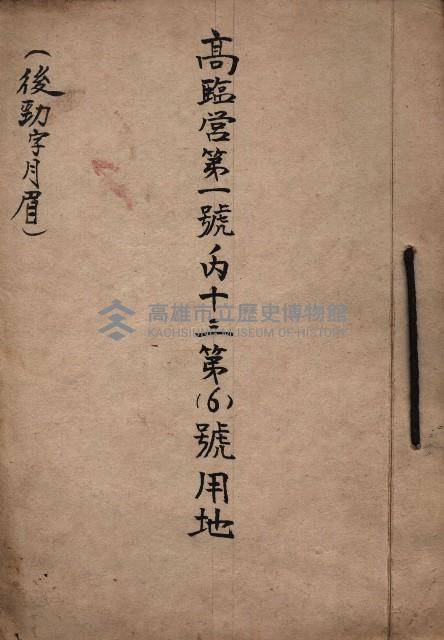 高臨営第一號ノ內十三第(6)號用地
(後勁字月眉)
高雄市立歷史博物館
KAOHSIUNG MUSEUM OF HISTORY